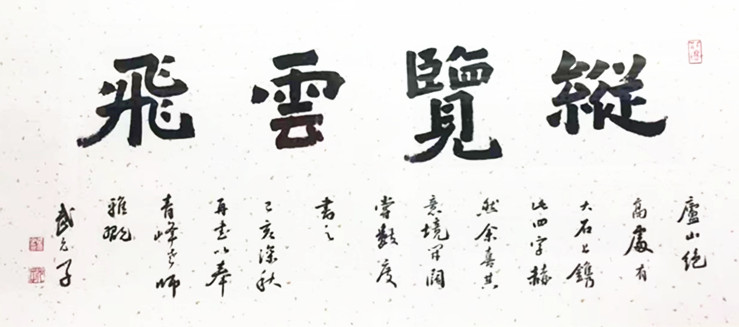 縱覽雲飛
廬山絕
高處有
大石上鐫
此四字赫
然余喜其
意境開闊
嘗數度
書之
己亥深秋
再書以奉
青峰吾師
雅觀
武
子